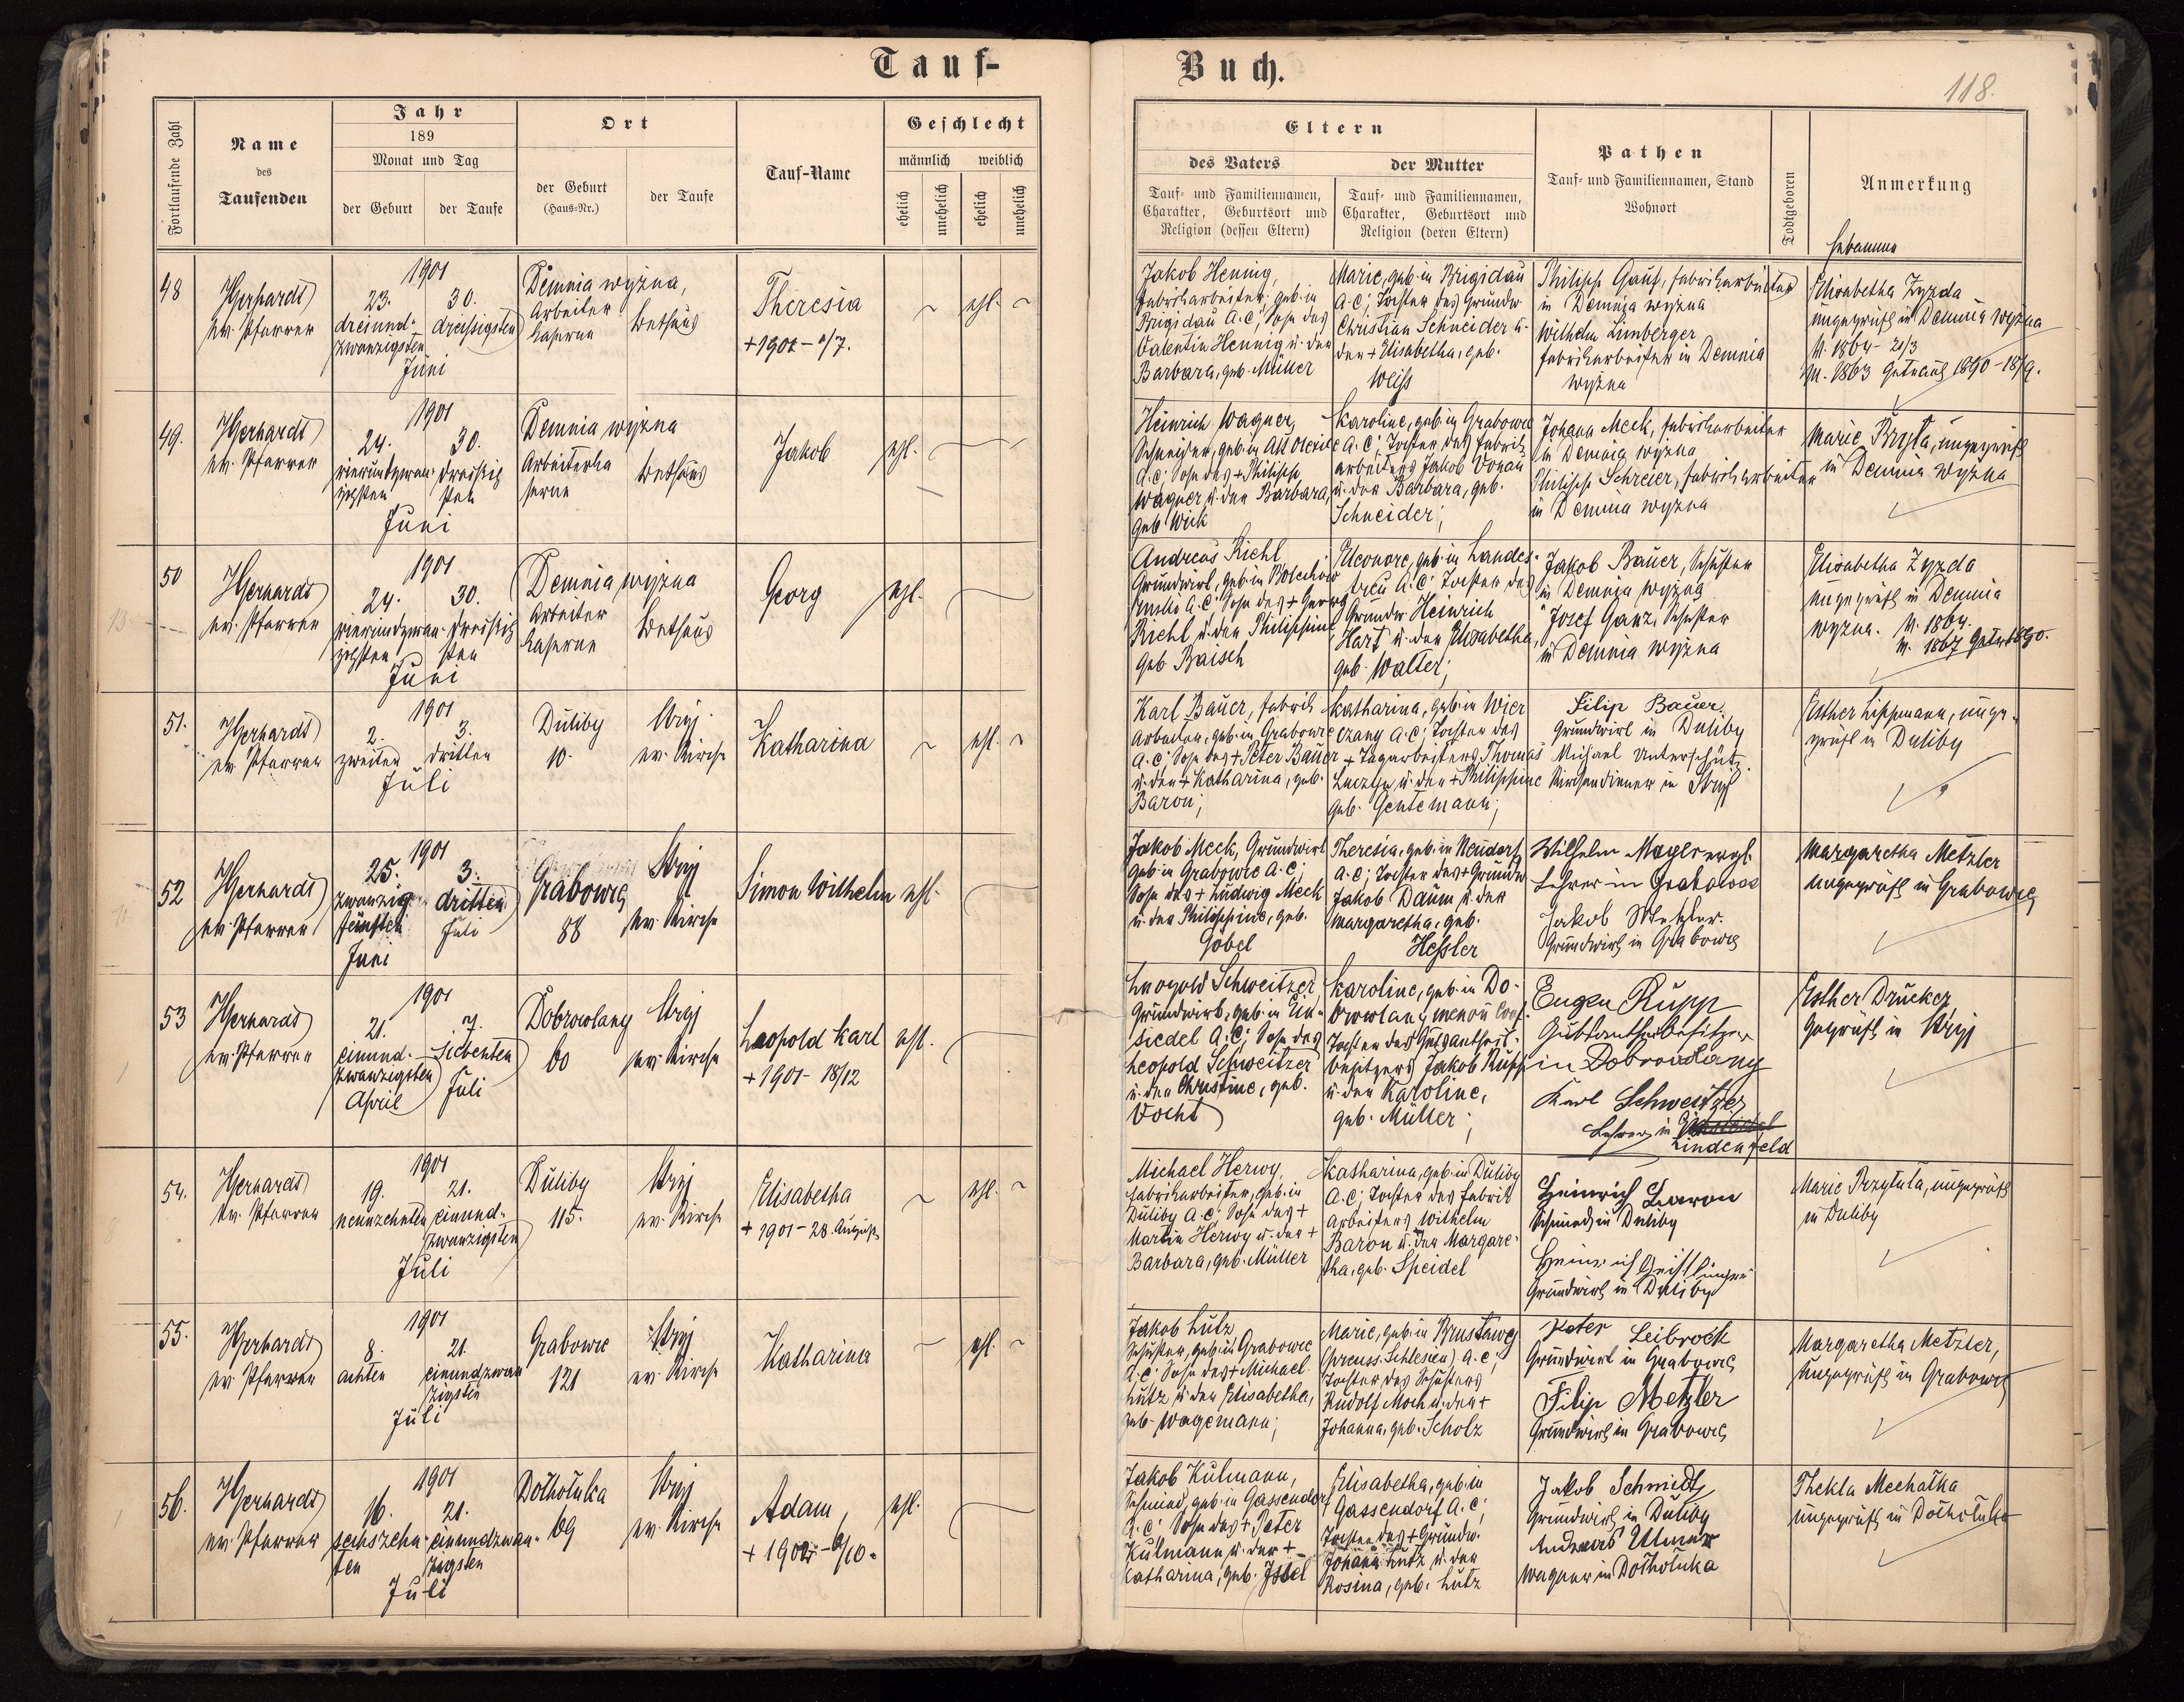 Tauf-
Buch.
118.
Fortlaufende Zahl
Name
des
Taufenden
Jahr
189
Monat und Tag
der Geburt
der Taufe
Ort
der Geburt
(Haus-Nr.)
der Taufe
Tauf-Name
Geschlecht
männlich weiblich
ehelich
unehelich
ehelich
unehelich
Eltern
des Vaters
Tauf- und Familiennamen,
Charakter, Geburtsort und
Religion (dessen Eltern)
der Mutter
Tauf- und Familiennamen,
Charakter, Geburtsort und
Religion (deren Eltern)
Pathen
Tauf- und Familiennamen, Stand
Wohnort
Todtgeboren
Anmerkung
Hebamme
48
Gerhardt
ev. Pfarrer
1901
23. 30.
dreiund- dreissigsten
zwanzigsten
Juni
Demnia wyżna,
Arbeiter
kaserne
Bethaus
Theresia
+1901
ehl.
Jakob Hennig,
Fabriksarbeiter, geb. in
Brigidau A.C; Sohn des
Valentin Hennig u. der
Barbara, geb. Müller
Marie, geb. in Brigidau
A.C; Tochter des Grundw.
Christian Schneider u.
der + Elisabetha, geb.
Weiss
Philipp Gans, Fabriksarbeiter
in Demnia wyżna
Wilhelm Limberger
Fabriksarbeiter in Demnia
wyżna
Elisabetha Zyzda
ungeprüft in Demnia wyżna
V. 1864 - 21/3
M. 1863 Getraut 1890 - 18/9.
49.
Gerhardt
ev. Pfarrer
1901
24. 30.
vierundzwan- dreissig
zigsten sten
Juni
Demnia wyżna
Arbeiterka
serne
Bethaus
Jakob
ehl.
Heinrich Wagner,
A.C; Sohn des + Philipp
Wagner u. der Barbara,
geb. Weik
Karoline, geb. in Grabowce
A.C; Tochter des Fabriks
arbeiters Jakob Vonau
u. der Barbara, geb.
Schneider;
Johann Meck, Fabriksarbeiter
in Demnia wyżna
Philipp Schreier, Fabriksarbeiter
in Demnia wyżna
Marie, ungeprüft
in Demnia wyżna
50
Gerhardt
ev. Pfarrer
1901
24. 30.
vierundzwan- dreissig
zigsten sten
Juni
Demnia wyżna
Arbeiter
kaserne
Bethaus
Georg
ehl.
Andreas Richl
Grundwirt, geb. in Bolechow
ruski A.C; Sohn des + Georg
Richl u. der Philippine
geb. Baisch
Eleonore, geb. in Landes-
treu A.C; Tochter des
Grundw. Heinrich
Hart u. der Elisabetha,
geb. Walter;
Jakob Bauer, Schuster
in Demnia wyżna
Josef Ganz, Schuster
in Demnia wyżna
Elisabetha Zyzda
ungeprüft in Demnia
wyżna. V. 1864.
M. 1867 Getraut 1890.
51.
Gerhardt
ev. Pfarrer
1901
2. 3.
zweiten dritten
Juli
Duliby
10.
Stryj
ev. Kirche
Katharina
ehl.
Karl Bauer, Fabriks
arbeiter, geb. in Grabowce
A.C; Sohn des + Peter Bauer
u. der + Katharina, geb.
Baron;
Katharina, geb. in Wier
czany A.C; Tochter des
+ Tagarbeiters Thomas
u. der + Philippine
geb. Gentemann;
Filip Bauer
Grundwirt in Duliby
Michael Unterschütz
Kirchendiener in Stryj
Esther Lippmann, unge-
prüft in Duliby
52
Gerhardt
ev. Pfarrer
1901
25. 3.
zwanzig dritten
fünften Juli
Juni
Grabowce
88
Stryj
ev. Kirche
Simon Wilhelm
ehl.
Jakob Meck, Grundwirt
geb. in Grabowce A.C;
Sohn des + Ludwig Meck
u. der Philippine, geb.
Göbel
Theresia, geb. in Neudorf,
A.C; Tochter des + Grundw.
Jakob Daum u. der
Margaretha, geb.
Hessler
Wilhelm
Lehrer in Grabowce
Jakob Metzler
Grundwirt in Grabowce
Margaretha Metzler
ungeprüft in Grabowce
53
Gerhardt
ev. Pfarrer
1901
21. 7.
einund- siebenten
zwanzigsten Juli
April
Dobrowlany
60
Stryj
ev. Kirche
Leopold Karl
+1901 - 18/12
ehl.
Leopold Schweitzer
Grundwirt, geb. in Ein-
siedel A.C; Sohn des
Leopold Schweitzer
u. der Christine, geb.
Vocht
Karoline, geb. in Do-
browlany
Tochter des Gutsantheil-
besitzers Jakob Rupp
u. der Karoline,
geb. Müller;
Eugen Rupp
Gutsantheilbesitzer
in Dobrowlany
Karl Schweitzer
Lehrer in
Lindenfeld
Esther Drucker
Geprüft in Stryj
54.
Gerhardt
ev. Pfarrer
1901
19. 21.
neunzehnten einund-
zwanzigsten
Juli
Duliby
115.
Stryj
ev. Kirche
Elisabetha
+ 1901 - 28. August
ehl.
Michael Herwy,
Fabriksarbeiter, geb. in
Duliby A.C; Sohn des +
Martin Herwy u. der +
Barbara, geb. Müller
Katharina, geb. in Duliby
A.C; Tochter des Fabriks
arbeiters Wilhelm
Baron u. der Margare-
tha, geb. Speidel
Heinrich Baron
Schmied in Duliby
Heinrich Geistlinger
Grundwirt in Duliby
Marie Przytuła, ungeprüft
in Duliby
55.
Gerhardt
ev. Pfarrer
1901
8. 21.
achten einundzwan
zigsten
Juli
Grabowce
121
Stryj
ev. Kirche
Katharina
ehl.
Jakob Lutz
Schuster, geb. in Grabowce
A.C; Sohn des + Michael
Lutz u. der Elisabetha,
geb. Wagemann;
Marie, geb. in Brustawe
(preuss. Schlesien) A.C;
Tochter des Schusters
Rudolf Moch u. der +
Johanna, geb. Scholz
Peter Leibrock
Grundwirt in Grabowce
Filip Metzler
Grundwirt in Grabowce
Margaretha Metzler,
ungeprüft in Grabowce
56.
Gerhardt
ev. Pfarrer
1901
16. 21.
sechszehn- einundzwan-
ten zigsten
Juli
Dołhołuka
69
Stryj
ev. Kirche
Adam
ehl.
Jakob Kulmann,
Schmied, geb. in Gassendorf
A.C; Sohn des + Peter
Kulmann u. der +
Katharina, geb. Issel
Elisabetha, geb. in
Gassendorf A.C;
Tochter des + Grundw.
Johann Lutz u. der
Rosina, geb. Lutz
Jakob Schmidt
Grundwirt in Duliby
Andreas Ullmer
Wagner in Dołhołuka
Thekla Mechałka
ungeprüft in Dołhołuka